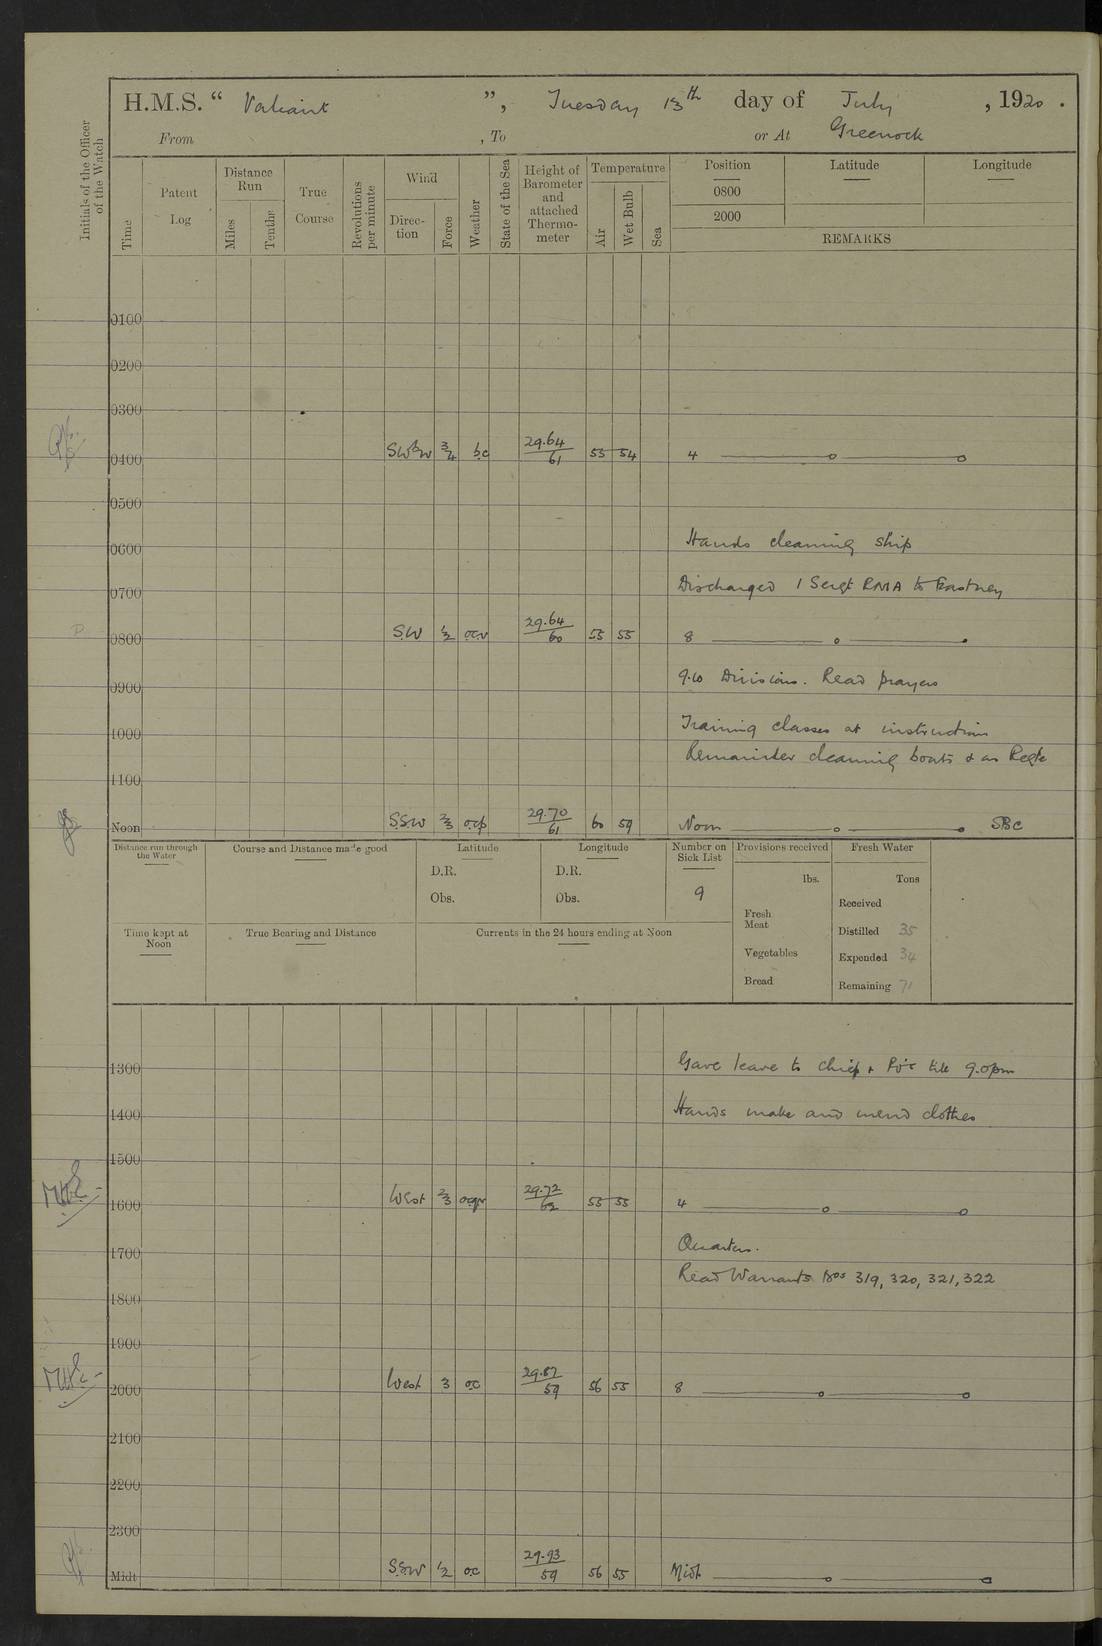 H.M.S. “ Valiant ”, Tuesday 13th day of July , 1920 .
From , To or At Greenock
Initials of the Officer of the Watch
Time
Patent Log
Distance Run
Miles
Tenths
True Course
Revolutions per minute
Wind
Direc-tion
Force
Weather
State of the Sea
Height of Barometer and attached Thermo-meter
Temperature
Air
Wet Bulb
Sea
Position
0800
2000
Latitude
Longitude
REMARKS
0100
0200
0300
0400 SWbW 3/4 bc 29.64/61 55 54 4
0500
0600 Hands cleaning ship
0700 Discharged 1 Sergt RMA to Eastney
0800 SW 1/2 29.64/60 55 55 8
0900 9.10 Divisions. Read prayers
1000 Training classes at instruction
Remainder cleaning boats & as Reqte
1100
Noon SSW 2/3 ocp 29.70/61 60 59 Noon SBC
Distance run through the Water
Course and Distance made good
Latitude
D.R.
Obs.
Longitude
D.R.
Obs.
Number on Sick List
9
Provisions received
lbs.
Fresh Meat
Vegetables
Bread
Fresh Water
Tons
Received
Distilled 35
Expended 34
Remaining 71
Time kept at Noon
True Bearing and Distance
Currents in the 24 hours ending at Noon
1300 Gave leave to chief & POs till 9.0pm
1400 Hands make and mend clothes
1500
1600 West 2/3 29.72/62 55 55 4
1700 Quarters.
Read Warrants Nos 319, 320, 321, 322
1800
1900
2000 West 3 oc 29.87/59 56 55 8
2100
2200
2300
Midt SSW 1/2 oc 29.93/59 56 55 Midt